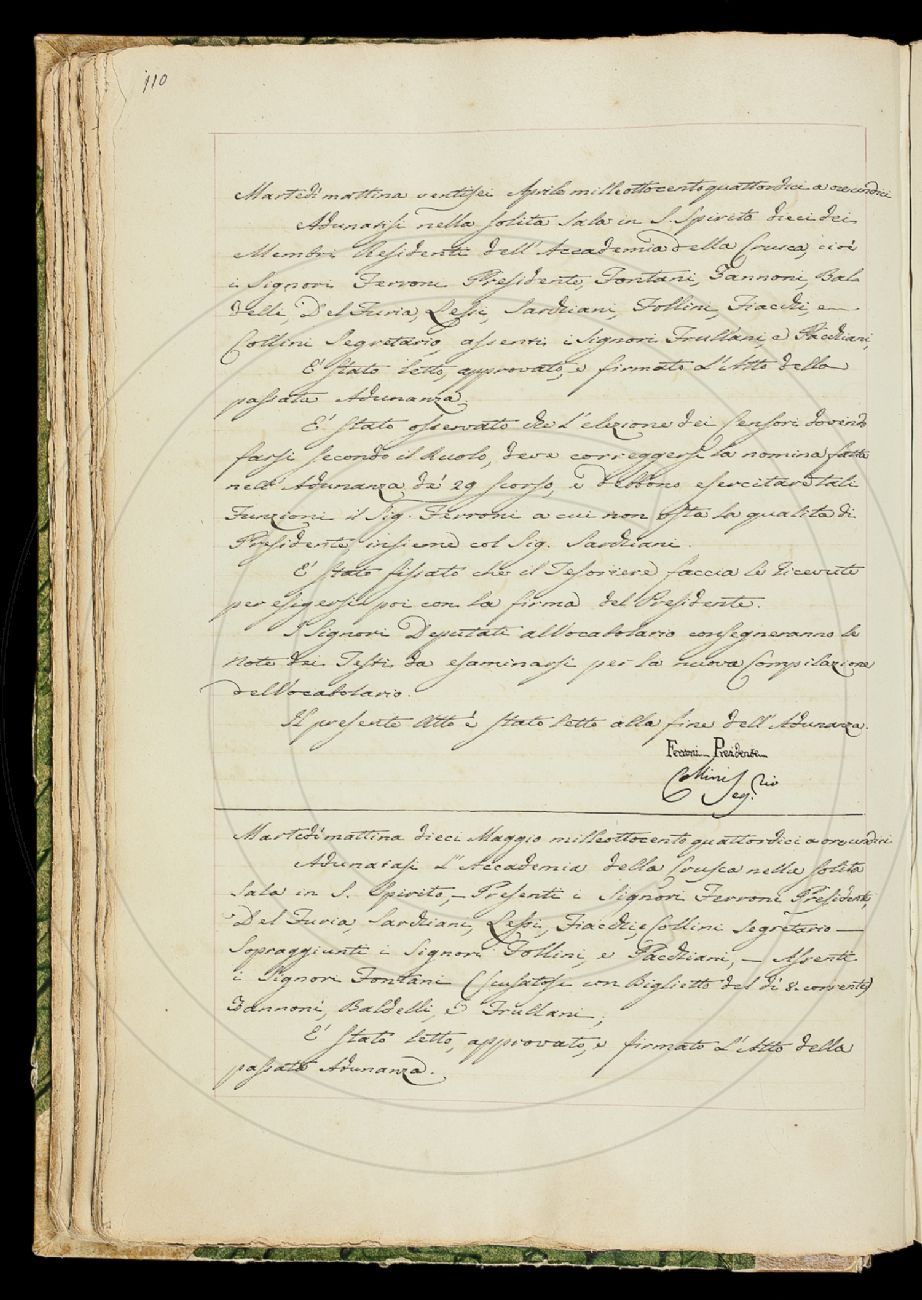 110
Martedì mattina ventisei Aprile milleottocentoquattordici a ore undici
Adunarisi nella solita Sala in S. Spirito dieci dei
Membri Residenti dell'Accademia della Crusca, cioè
i Signori Ferroni Presidente, Fontani, Zannoni, Bal
delli, Del Furia, Lessi, Sarchiani, Follini, Fiacchi, e
Collini Segretario, assenti i Signori Frullani, e Pacchiani,
E' stato letto, approvato, e firmato L'Atto della
passata Adunanza.
E' stato osservato che l'elezione dei Censori dovendo
farsi secondo il Ruolo, deve correggersi la nomina fatta
nell'Adunanza de' 29 scorso, e debbono esercitare tali
Funzioni il Sig. Ferroni a cui non osta la qualità di
Presidente insieme col Sig. Sarchiani
E' stato fissato che il Tesoriere faccia le ricevute
per esigersi poi con la firma del Presidente.
I Signori Deputati al Vocabolario consegneranno le
Note dei Testi da esaminarsi per la nuova Compilazione
del Vocabolario.
Il presente Atto è stato letto alla fine dell'Adunanza.
Ferroni Presidente
Collini Seg.rio
Martedì mattina dieci Maggio milleottocentoquattordici a ore undici
Adunatasi L'Accademia della Crusca nella solita
Sala in S. Spirito, – Presenti i Signori Ferroni Presidente,
Del Furia, Sarchiani, Lessi, Fiacchi, e Collini Segretario —
Sopraggiunti i Signori Follini, e Pacchiani, – Assenti
i Signori Fontani (scusatosi con Biglietto del dì 8. corrente)
Zannoni, Baldelli, e Frullani;
E' stato letto, approvato, e firmato L'Atto della
passata Adunanza.